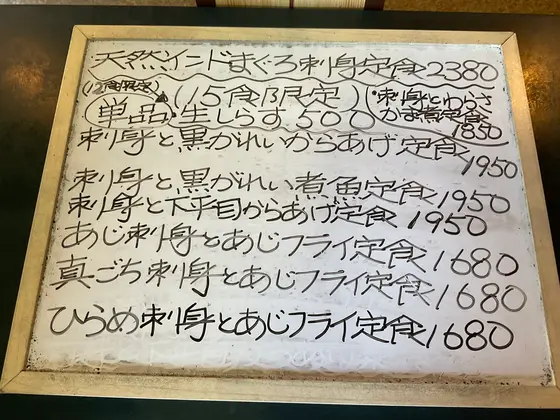 天然インドまぐろ刺身定食2380
(12食限定)
(15食限定)
単品・生しらす500
・刺身とわらさ
かま煮定食
1850
刺身と黒がれいからあげ定食
1950
刺身と黒がれい煮魚定食1950
刺身と下平目からあげ定食1950
あじ刺身とあじフライ定食1680
真ごち刺身とあじフライ定食1680
ひらめ刺身とあじフライ定食1680